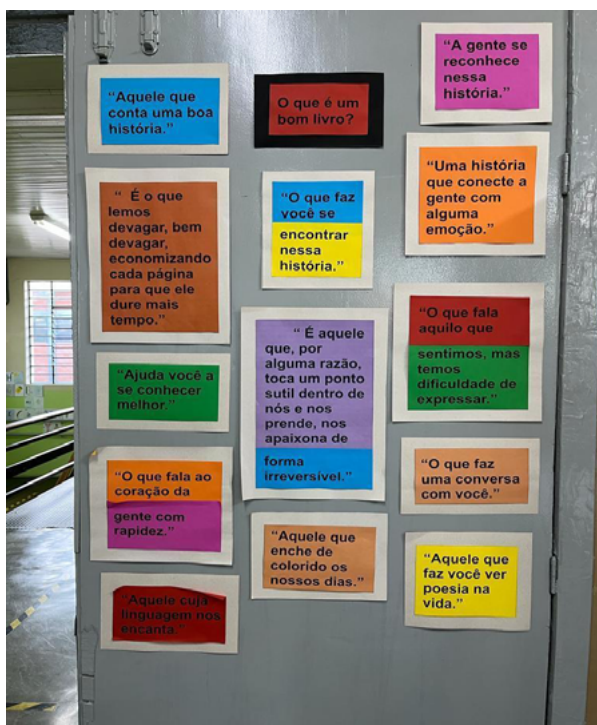 “Aquele que
conta uma boa
história.”
“ É o que
lemos
devagar, bem
devagar,
economizando
cada página
para que ele
dure mais
tempo.”
“Ajuda você a
se conhecer
melhor.”
“O que fala ao
coração da
gente com
rapidez.”
“Aquele cuja
linguagem nos
encanta.”
O que é um
bom livro?
“O que faz
você se
encontrar
nessa
história.”
“ É aquele
que, por
alguma razão,
toca um ponto
sutil dentro de
nós e nos
prende, nos
apaixona de
forma
irreversível.”
“Aquele que
enche de
colorido os
nossos dias.”
“A gente se
reconhece
nessa
história.”
“Uma história
que conecte a
gente com
alguma
emoção.”
“O que fala
aquilo que
sentimos, mas
temos
dificuldade de
expressar.”
“O que faz
uma conversa
com você.”
“Aquele que
faz você ver
poesia na
vida.”